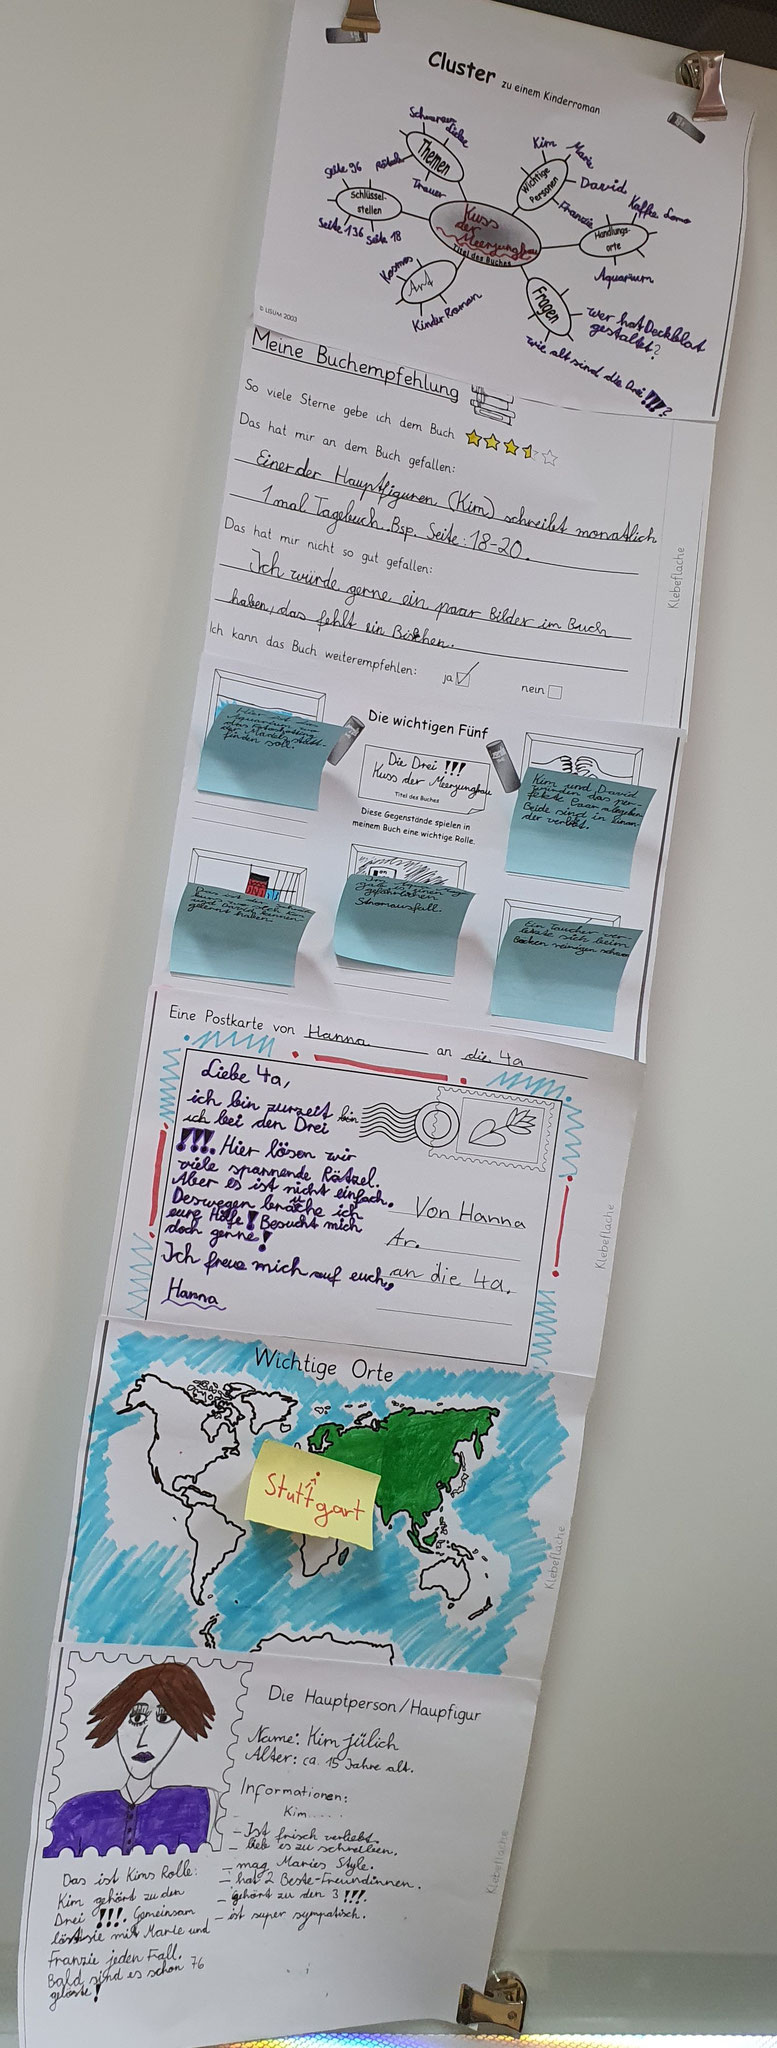 Cluster zu einem Kinderroman
Schwarzer
Liebe
Themen
Trauer
Kim
Marie
Wichtige
Personen
David
Franzie
Seite 96
Schlüssel-
stellen
Seite 136
Seite 18
Kuss
der
Meerjungfrau
Titel des Buches
Handlungs-
orte
Aquarium
Kosmos
Art
Kinder Roman
Fragen
wer hat Deckblat
gestaltet?
wie alt sind die Drei !!!?
© LISUM 2003
Meine Buchempfehlung
So viele Sterne gebe ich dem Buch
Das hat mir an dem Buch gefallen:
Einer der Hauptfiguren (Kim) schreibt monatlich
1 mal Tagebuch. Bsp. Seite: 18-20.
Das hat mir nicht so gut gefallen:
Ich würde gerne ein paar Bilder im Buch
haben, das fehlt ein Bischen.
Ich kann das Buch weiterempfehlen:
ja
nein
Klebefläche
Die wichtigen Fünf
Die Drei !!!
Kuss der Meerjungfrau
Titel des Buches
Diese Gegenstände spielen in
meinem Buch eine wichtige Rolle.
Hier ist das
Aquarium wo
das
der Mädels statt-
finden soll.
Kim und David
würden das per-
fekte Paar abgeben
Beide sind in einan-
der verliebt.
und David kennen
gelernt haben.
gab es einen
gefährlichen
Stromausfall.
Ein Taucher ver-
letzte sich beim
Becken reinigen schwer
Eine Postkarte von Hanna an die 4a
Liebe 4a,
ich bin zurzeit bin
ich bei den Drei
!!!. Hier lösen wir
viele spannende Rätzel.
Aber es ist nicht einfach.
Deswegen bräuche ich
eure Hilfe! Besucht mich
doch gerne!
Ich freue mich auf euch,
Hanna
Von Hanna
An.
an die 4a.
Klebefläche
Wichtige Orte
Stuttgart
Klebefläche
Die Hauptperson/Haupfigur
Name: Kim jülich
Alter: ca. 15 Jahre alt.
Informationen:
Kim......
- Ist frisch verliebt.
- lieb es zu schreiben.
- mag Maries Style.
- hat 2 Beste-Freundinnen.
- gehört zu den 3 !!!.
- ist super sympatisch.
Das ist Kims Rolle:
Kim gehört zu den
Drei !!!. Gemeinsam
löst sie mit Marie und
Franzie jeden Fall.
Bald sind es schon 76
gelöste!
Klebefläche